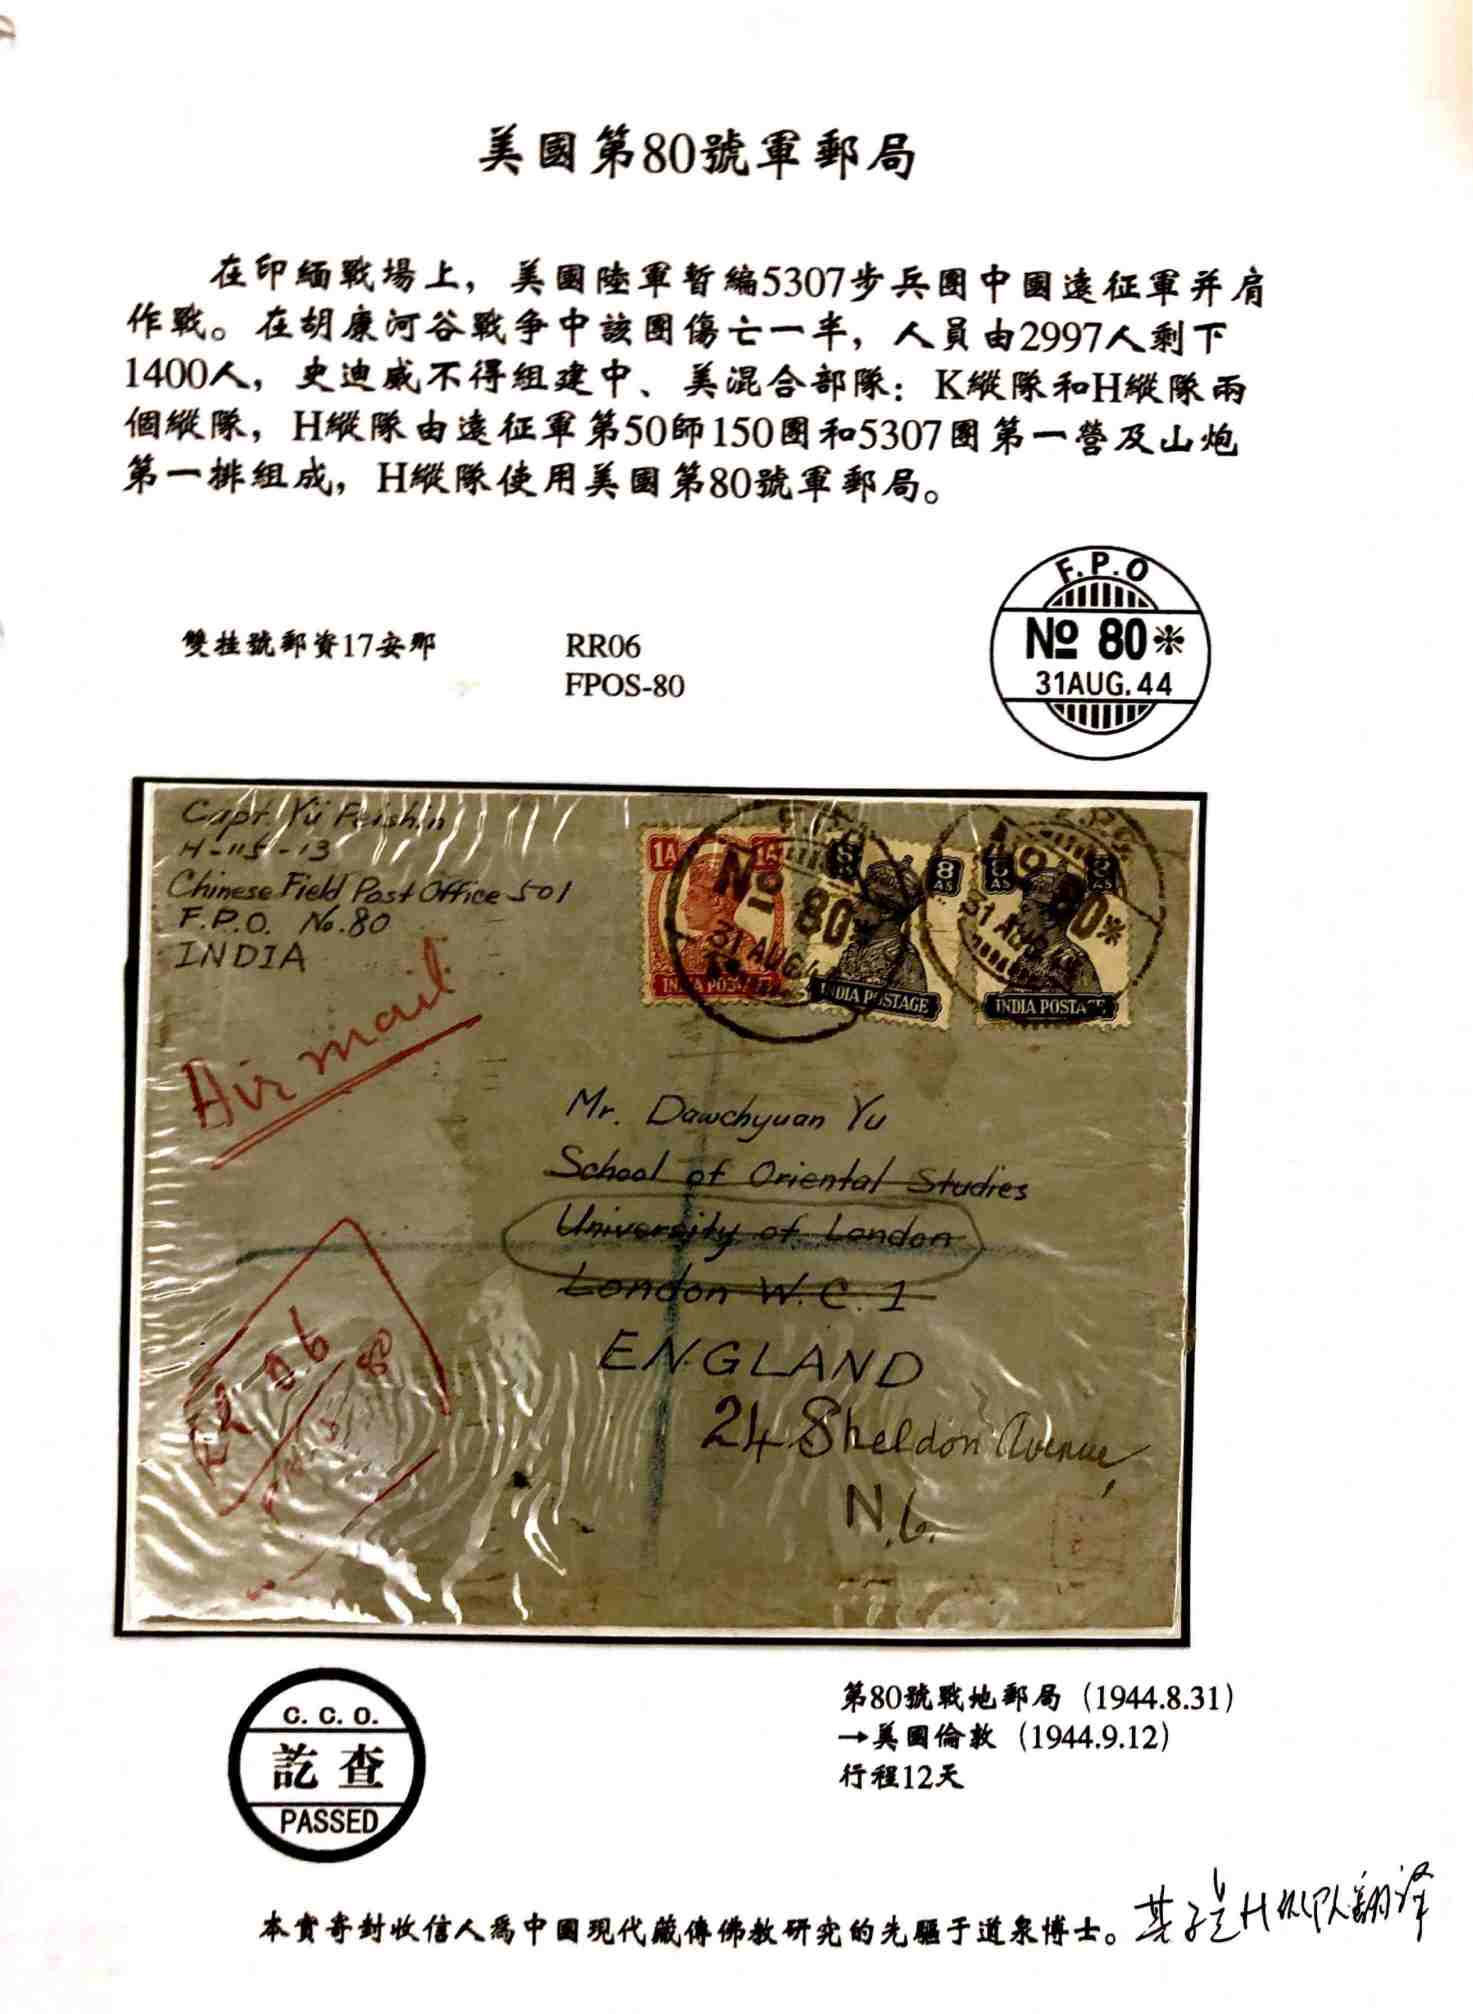 美國第80號軍郵局
在印緬戰場上，美國陸軍暫編5307步兵團中國遠征軍并肩
作戰。在胡康河谷戰争中該團傷亡一半，人員由2997人剩下
1400人，史迪威不得組建中、美混合部隊：K縱隊和H縱隊兩
個縱隊，H縱隊由遠征軍第50師150團和5307團第一營及山炮
第一排組成，H縱隊使用美國第80號軍郵局。
雙挂號郵資17安那
RR06
FPOS-80
F.P.O
Nº 80*
31AUG.44
Capt. Yü Peishin
H-115-13
Chinese Field Post Office 501
F.P.O. No.80
INDIA
Air mail
1A
INDIA POSTAGE
8 AS
INDIA POSTAGE
8 AS
INDIA POSTAGE
Nº 80*
31 AUG 4
80*
31 AUG 4
Mr. Dawchyuan Yu
School of Oriental Studies
University of London
London W.C.1
ENGLAND
24 Sheldon Avenue,
N.6.
RR 06
80
C.C.O.
訖查
PASSED
第80號戰地郵局（1944.8.31）
→美國倫敦（1944.9.12）
行程12天
本實寄封收信人爲中國現代藏傳佛教研究的先驅于道泉博士。
H縱队翻译